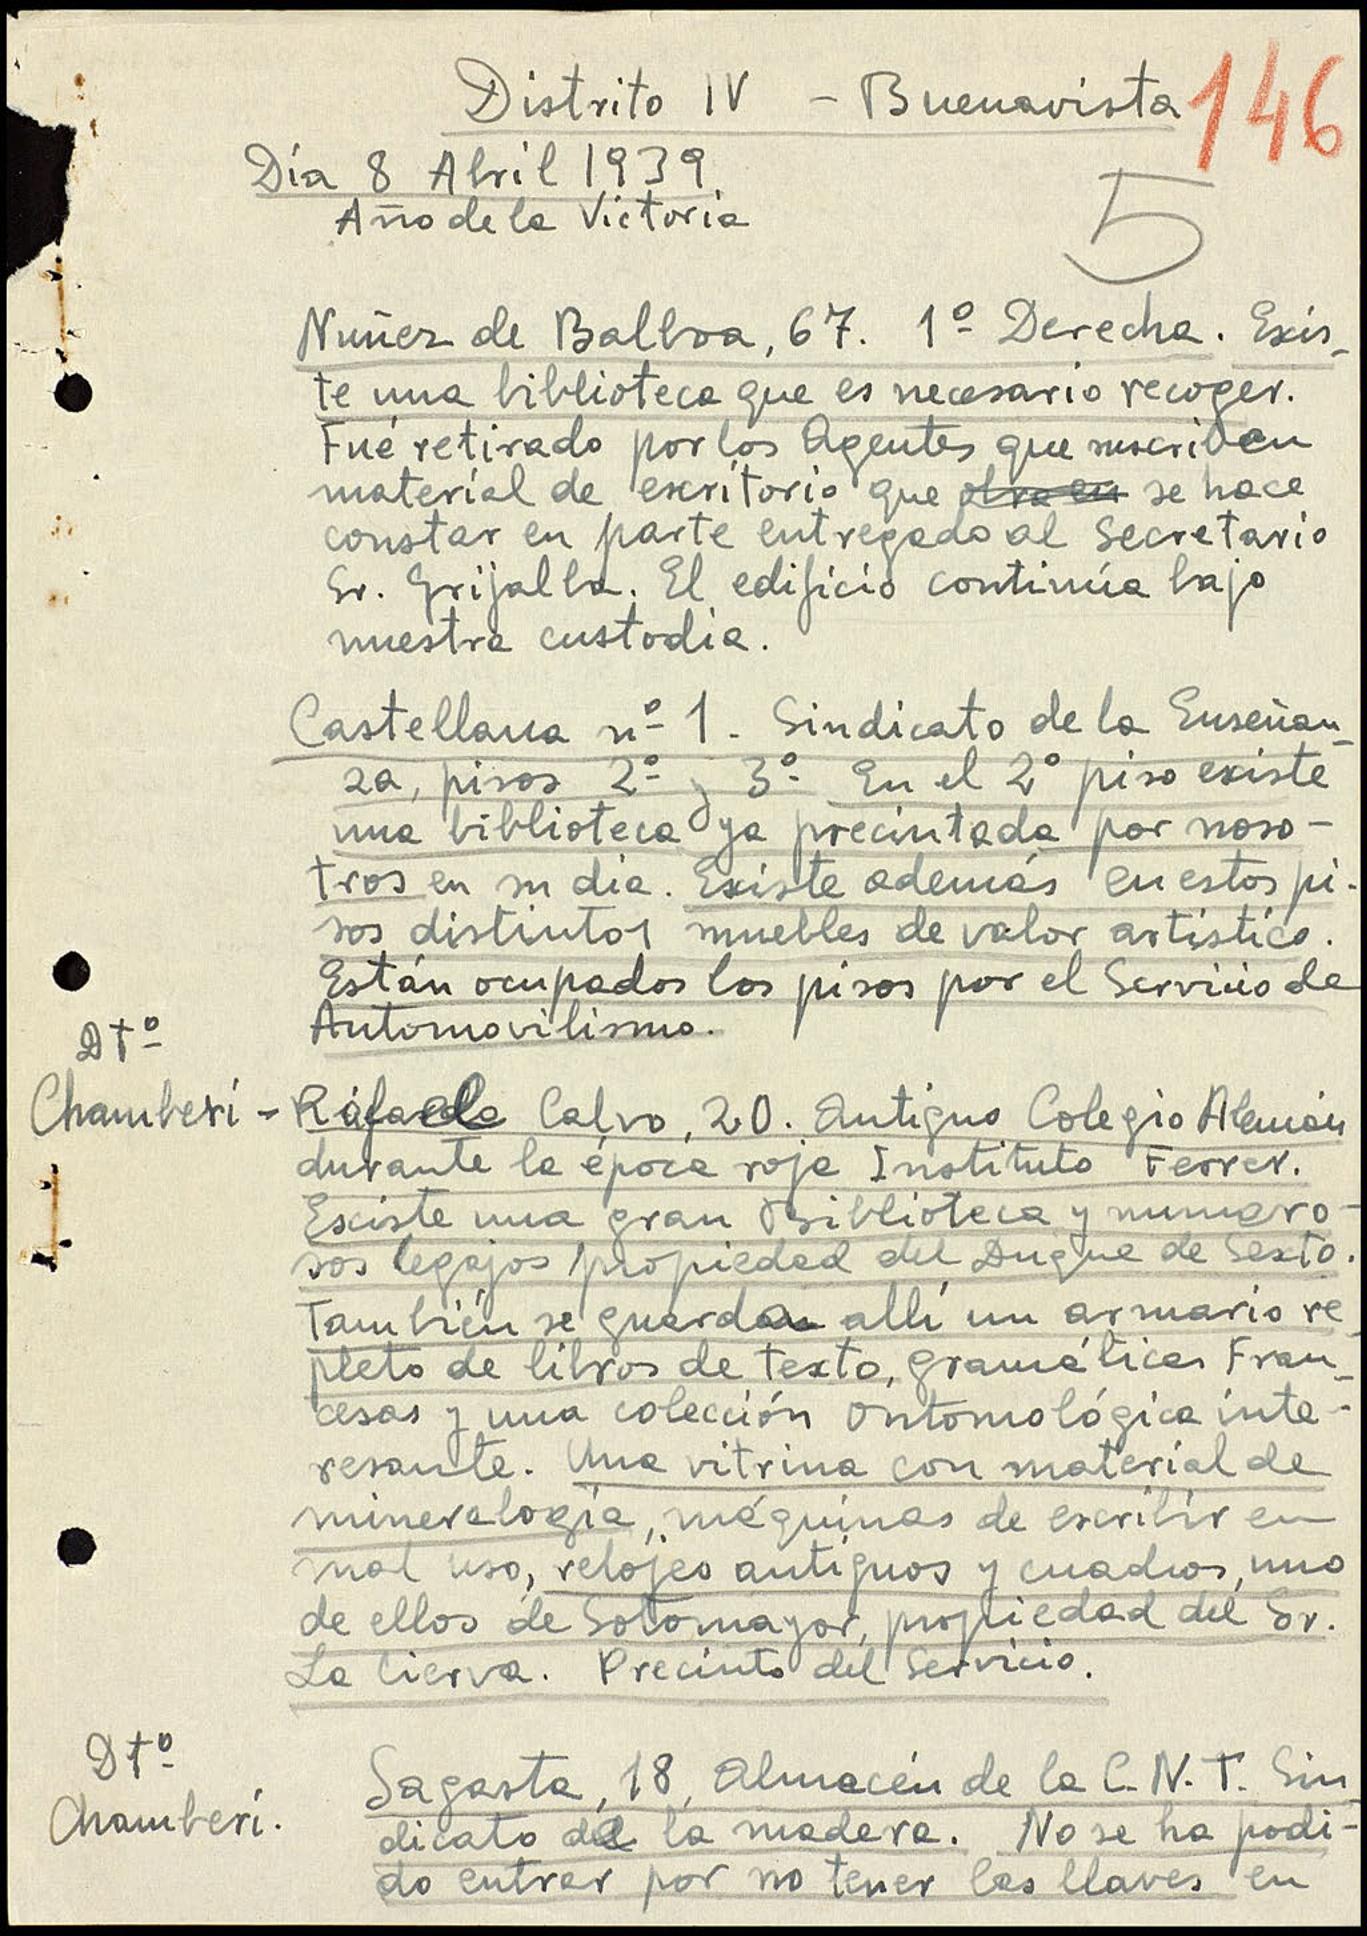 Distrito IV - Buenavista
146
Día 8 Abril 1939
Año de la Victoria
5
Nuñez de Balboa, 67. 1º Derecha. Exis-
te una biblioteca que es necesario recoger.
Fué retirado por los Agentes que suscriben
material de escritorio que obra en se hace
constar en parte entregado al Secretario
Sr. Grijalba. El edificio continúa bajo
nuestra custodia.
Castellana nº 1. Sindicato de la Enseñan-
za, pisos 2º y 3º En el 2º piso existe
una biblioteca ya precintada por noso-
tros en su dia. Existe además en estos pi-
sos distintos muebles de valor artístico.
Están ocupados los pisos por el Servicio de
Automovilismo.
Dtº
Chamberí - Rafael Calvo, 20. Antiguo Colegio Alemán
durante la época roja Instituto Ferrer.
Existe una gran Biblioteca y numero-
sos legajos propiedad del Duque de Sexto.
También se guardan allí un armario re-
pleto de libros de texto, gramáticas Fran-
cesas y una colección ontomológica inte-
resante. Una vitrina con material de
mineralogía, máquinas de escribir en
mal uso, relojes antiguos y cuadros, uno
de ellos de Sotomayor, propiedad del Sr.
La Cierva. Precinto del Servicio.
Dtº
Chamberí.
Sagasta, 18, Almacén de la C.N.T. Sin-
dicato de la madera. No se ha podi-
do entrar por no tener las llaves en